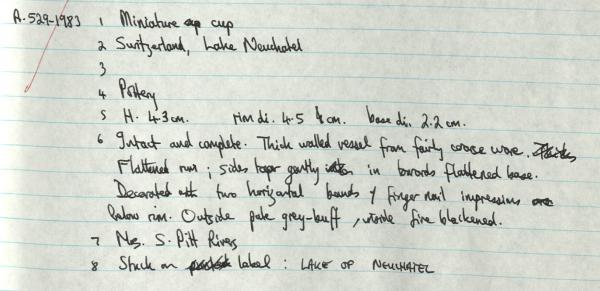 A.529-1983 1 Miniature cup
2 Switzerland, Lake Neuchatel
3
4 Pottery
5 H. 4.3cm. rim di. 4.5 cm. base di. 2.2 cm.
6 Intact and complete. Thick walled vessel from fairly coarse ware.
Flattened rim; sides taper gently in towards flattened base.
Decorated two horizontal bands of finger nail impressions
below rim. Outside pale grey-buff, inside fire blackened.
7 S. Pitt Rivers
8 Stuck on label: LAKE OF NEUCHATEL